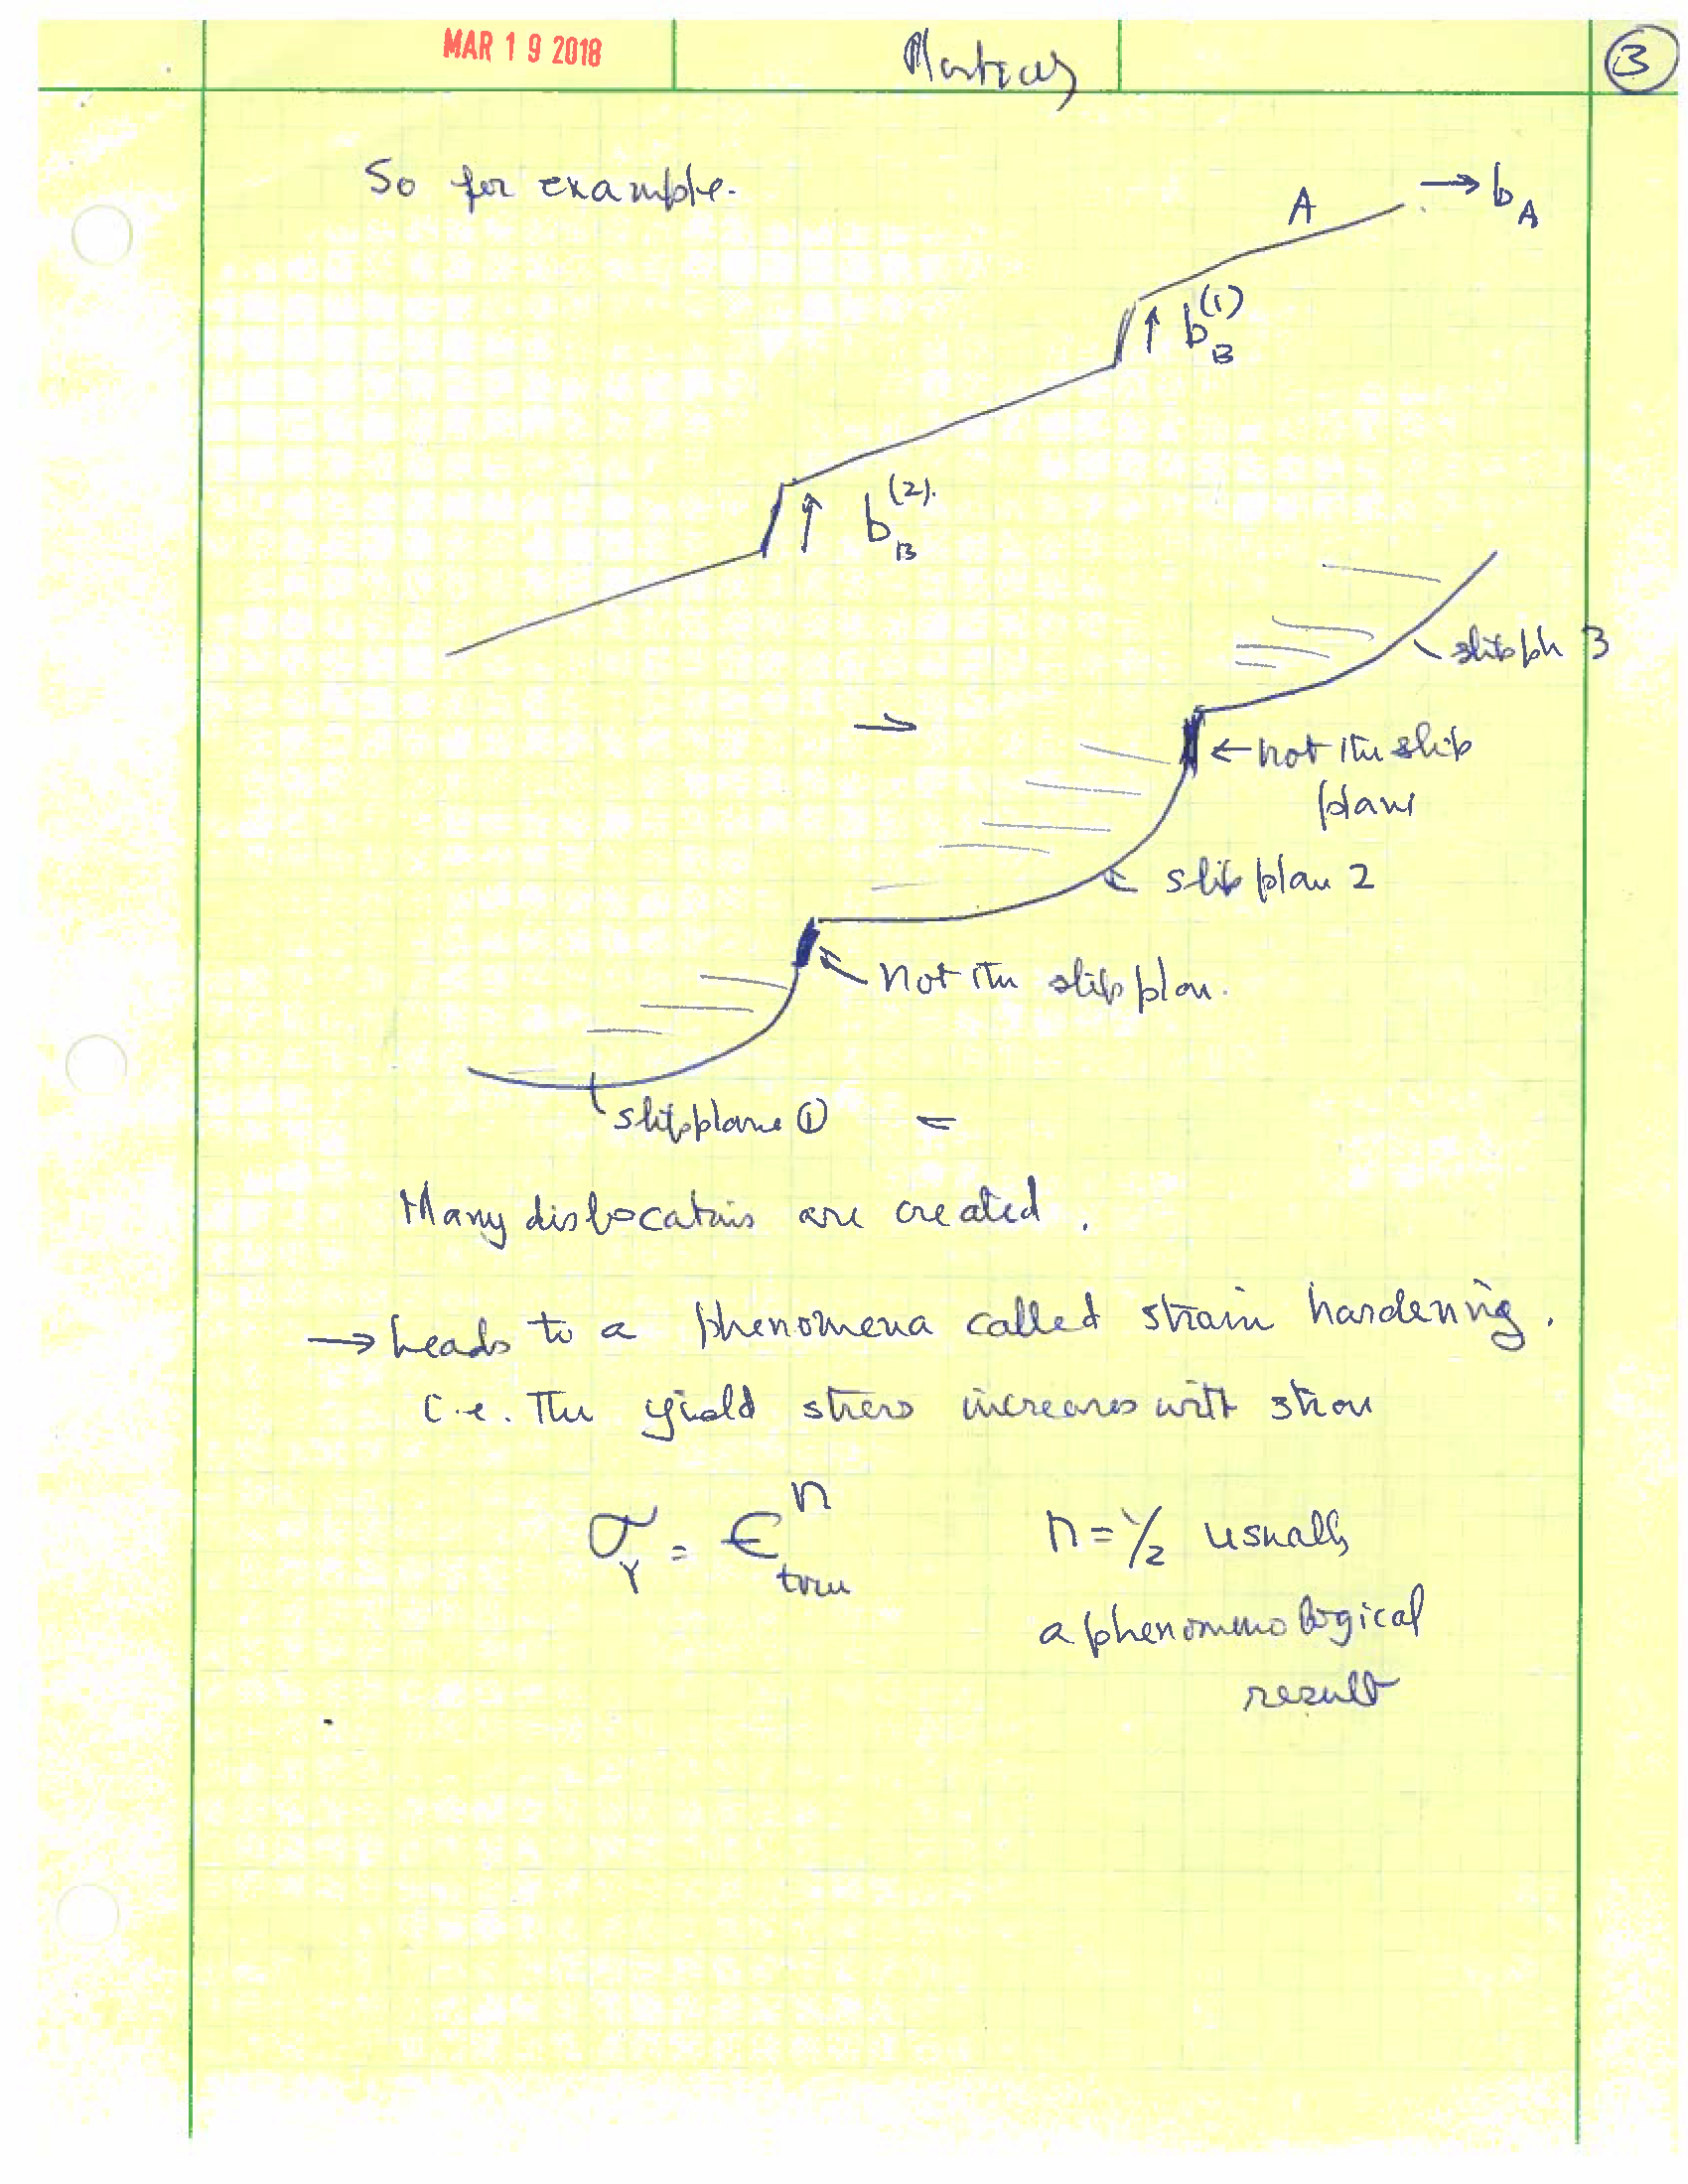 MAR 19 2018
3
So for example.
A → b_A
↑ b_B^(1)
↑ b_B^(2).
slip pln 3
→
← not the slip
plane
← slip plan 2
← not the slip plan.
slip plane ①
Many dislocatins are created.
→ Leads to a phenomena called strain hardening.
i.e. The yield stress increases with strain
σ_Y = ε_true^n
n = 1/2 usually
a phenomenological
result